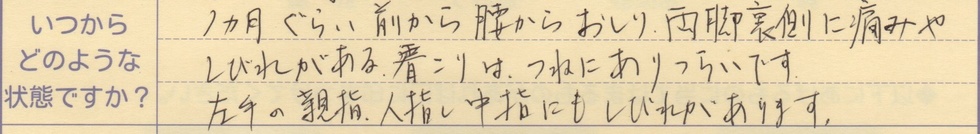 いつから
どのような
状態ですか？
1カ月ぐらい前から腰からおしり、両脚裏側に痛みや
しびれがある。肩こりは、つねにありつらいです
左手の親指、人指し中指にもしびれがあります。